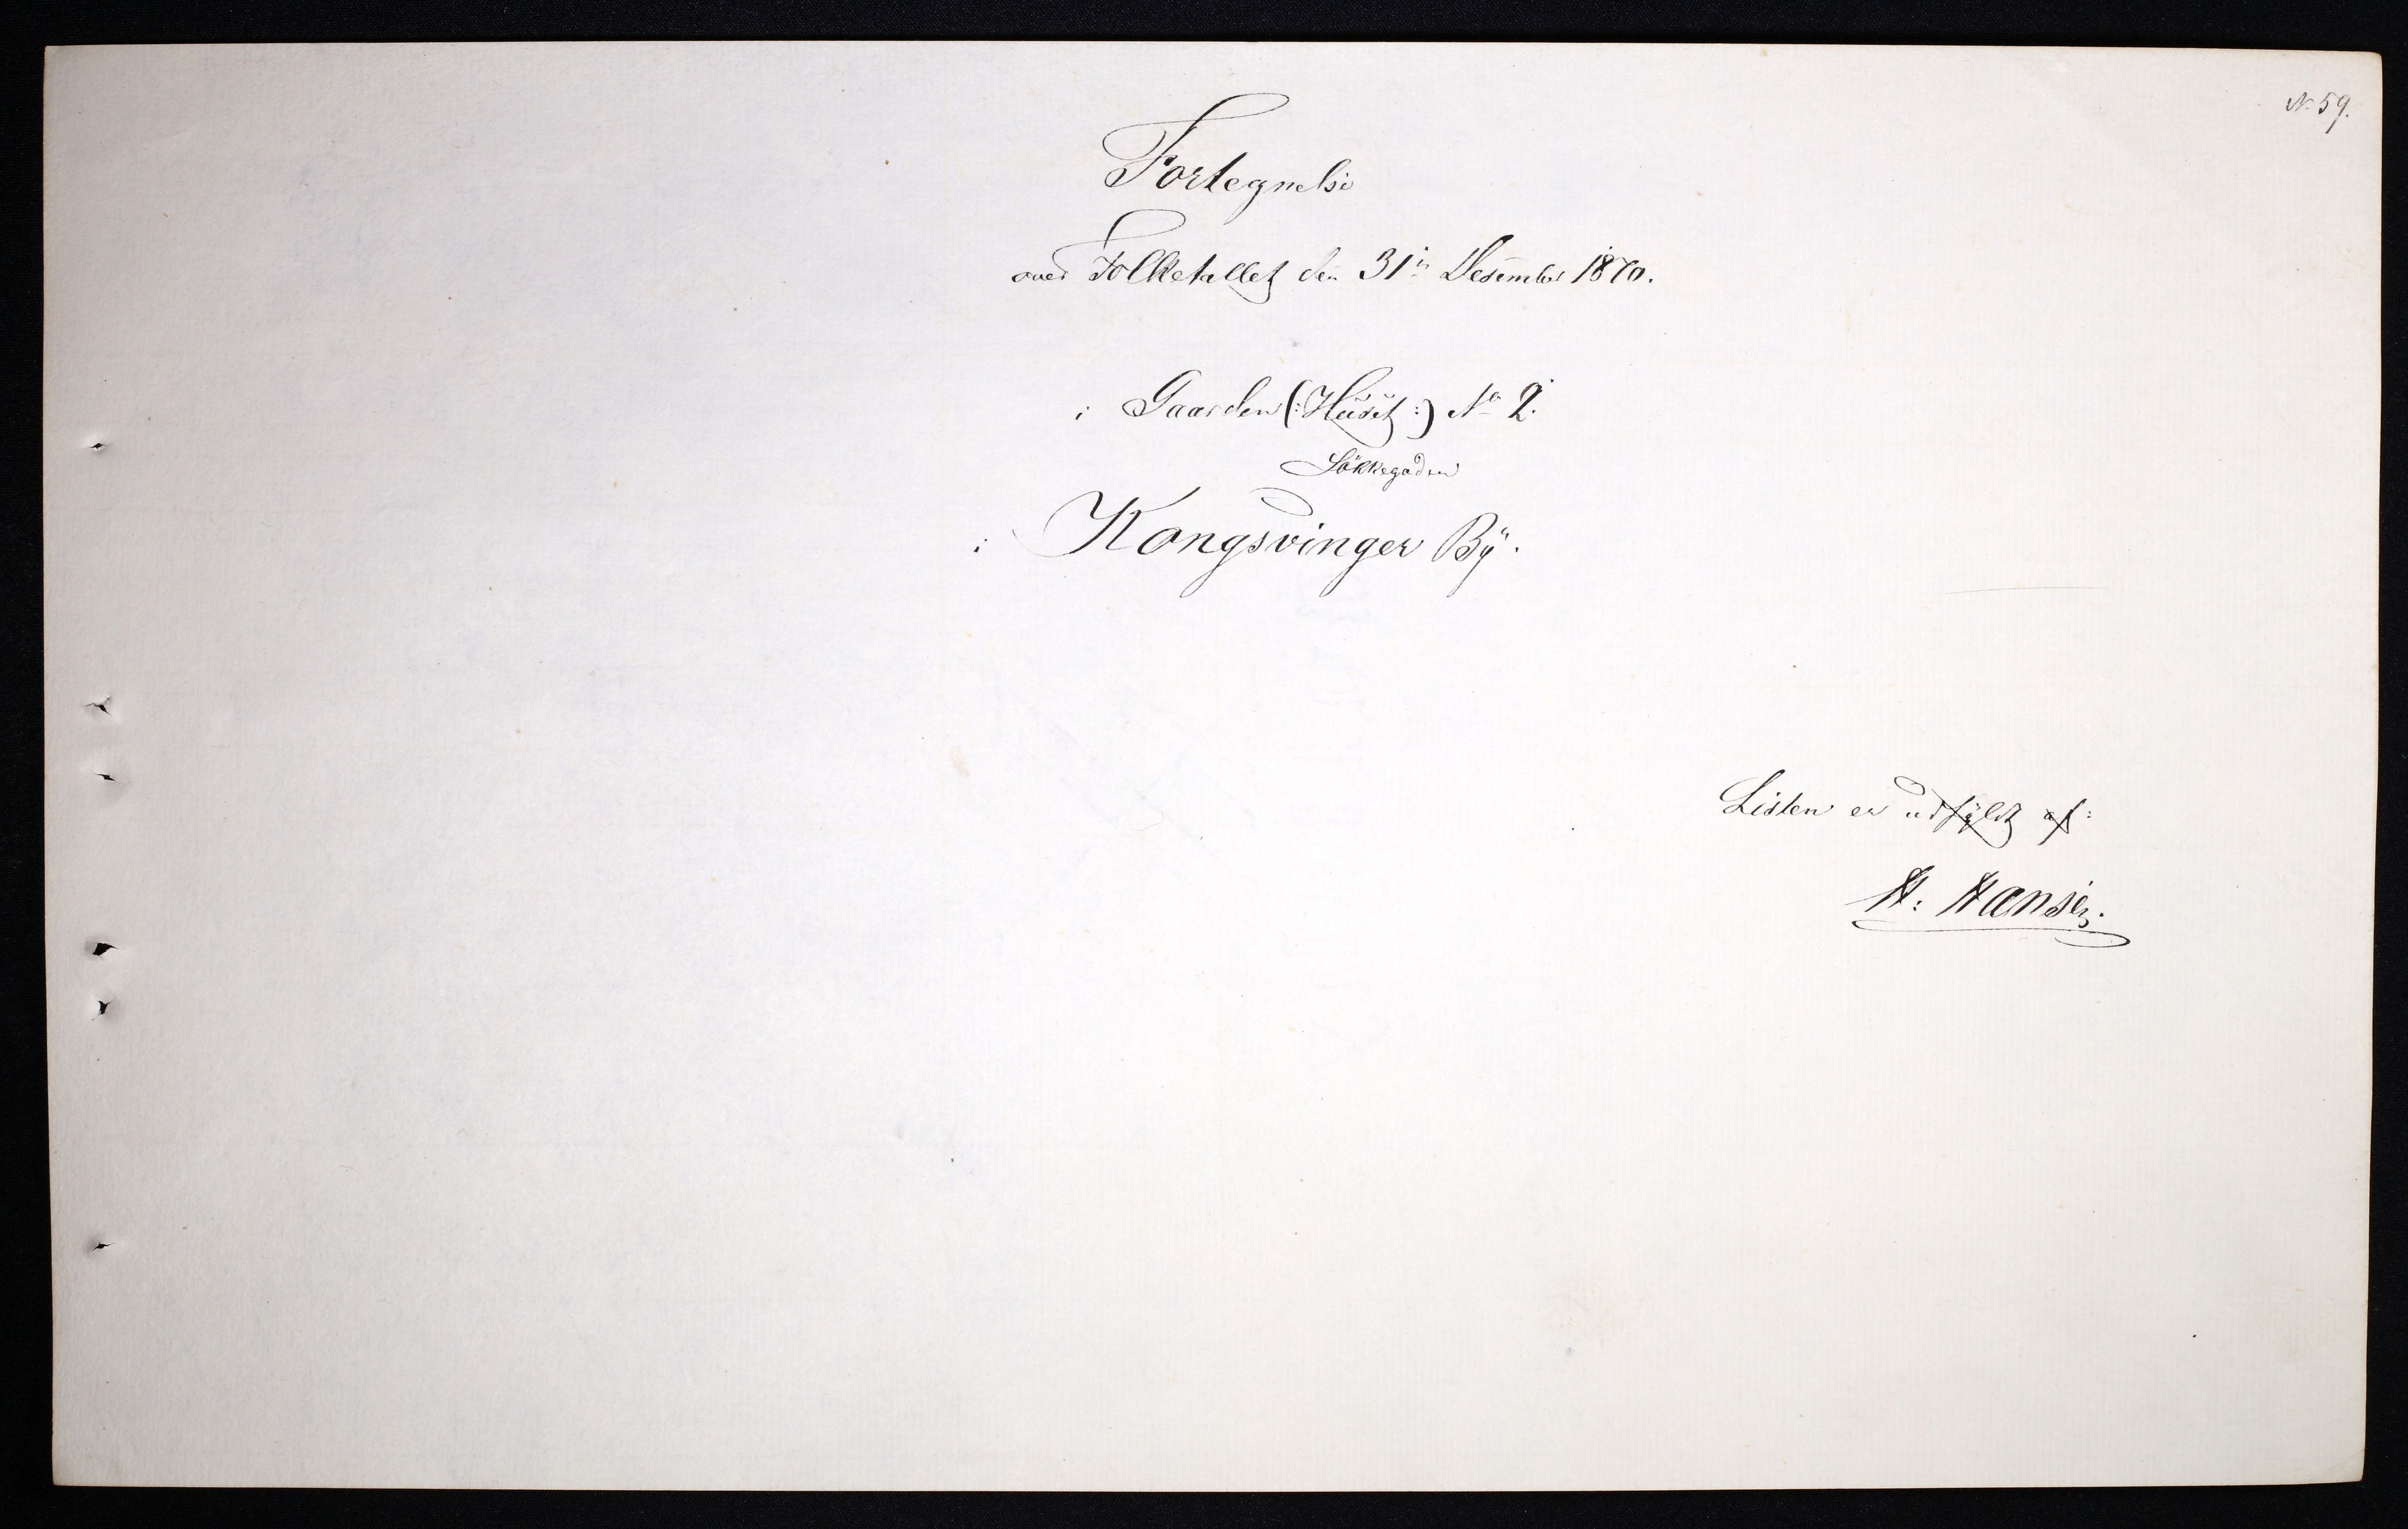 N. 59.
Fortegnelse
over Folketallet den 31te Desember 1870.
i Gaarden (: Huset :) No 2.
Lökkegaden
i Kongsvinger By.
Listen er udfyldt af:
H: Hansen.